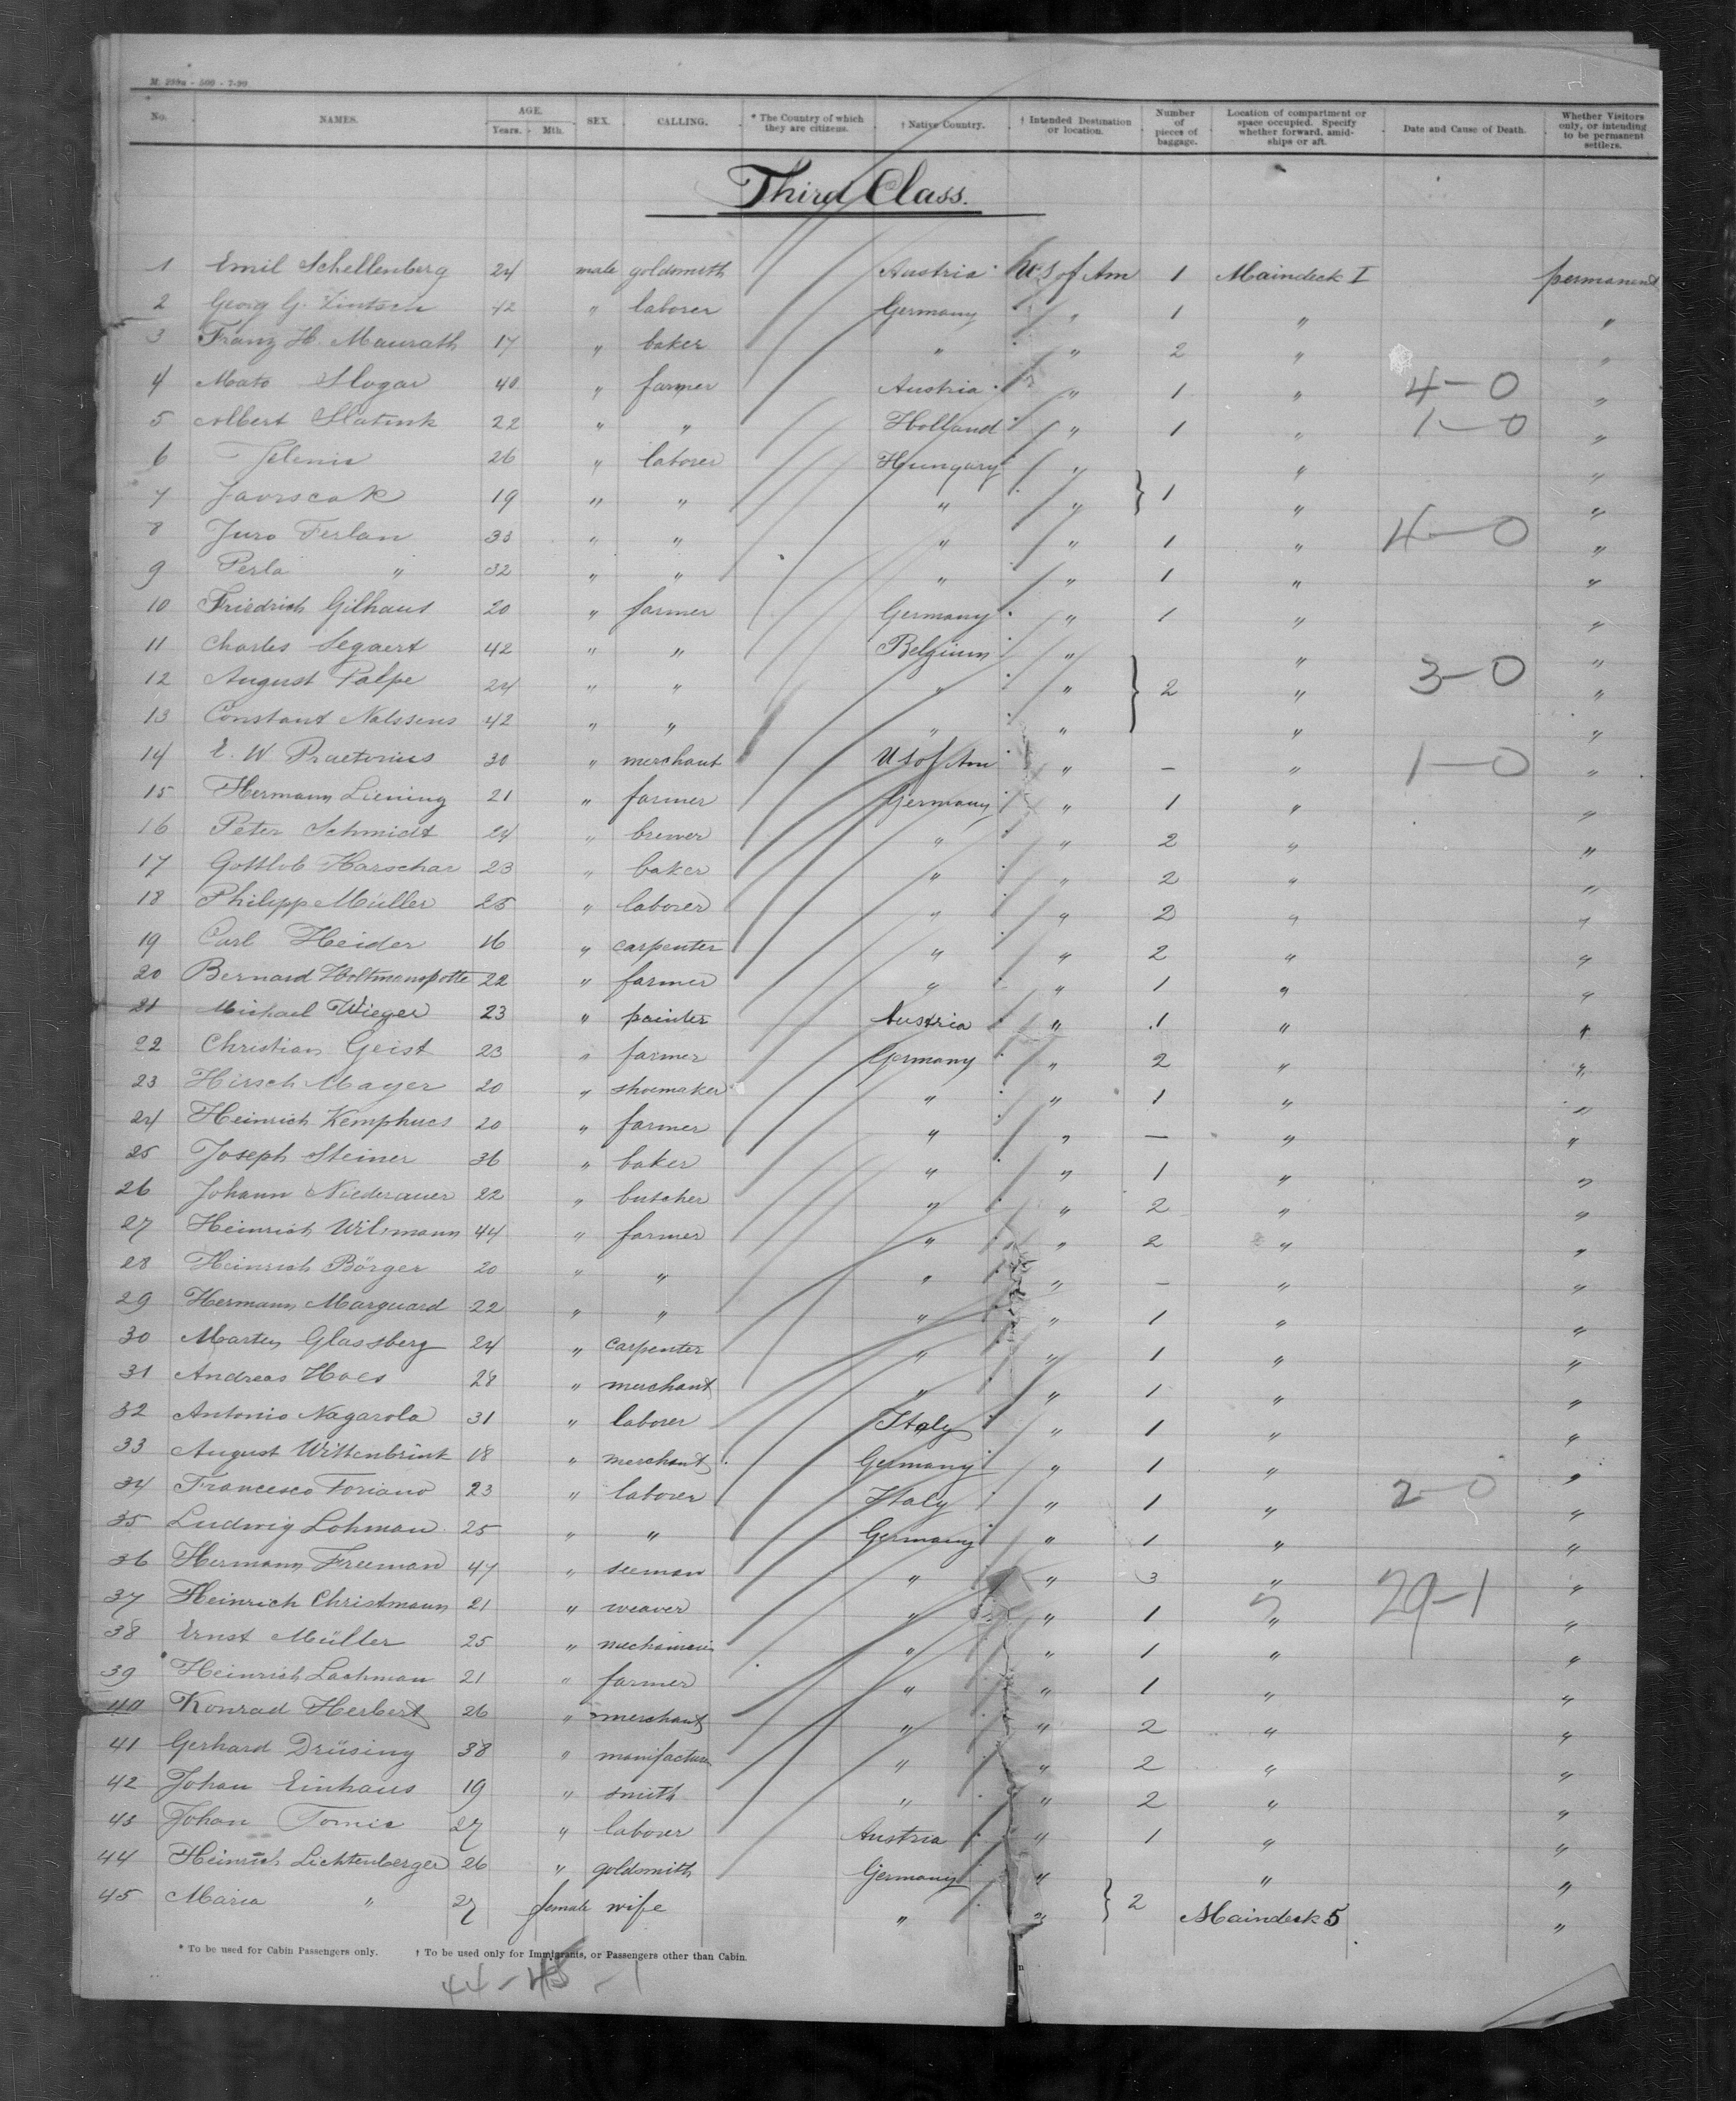 M. 259a - 500 - 7-90
No. NAMES. AGE. Years. Mth. SEX. CALLING. * The Country of which they are citizens. † Native Country. † Intended Destination or location. Number of pieces of baggage. Location of compartment or space occupied. Specify whether forward, amidships or aft. Date and Cause of Death. Whether Visitors only, or intending to be permanent settlers.
Third Class.
1 Emil Schellenberg 24 male goldsmith Austria U S of Am 1 Maindeck I permanent
2 Georg G. 42 " laborer Germany " 1 " "
3 Franz H. Maurath 17 " baker " " 2 " "
4 Mato Slogar 40 " farmer Austria " 1 " 4-0 "
5 Albert Slatink 22 " " Holland " 1 " 1-0 "
6 Jelenic 26 " laborer Hungary " " "
7 Javrscak 19 " " " " } 1 " "
8 Juro Ferlan 33 " " " " 1 " 4-0 "
9 Perla " 32 " " " " 1 " "
10 Friedrich Gilhaus 20 " farmer Germany " 1 " "
11 Charles Segaert 42 " " Belgium " " "
12 August Palpe 24 " " " " } 2 " 3-0 "
13 Constant Nalssens 42 " " " " " "
14 E. W Praetorius 30 " merchant U S of Am " — " 1-0 "
15 Hermann Liening 21 " farmer Germany " 1 " "
16 Peter Schmidt 24 " brewer " " 2 " "
17 Gottlob Harschar 23 " baker " " 2 " "
18 Philipp Müller 25 " laborer " " 2 " "
19 Carl Heider 16 " carpenter " " 2 " "
20 Bernard Holtmanspotte 22 " farmer " " 1 " "
21 Michael Wieger 23 " painter Austria " 1 " "
22 Christian Geist 23 " farmer Germany " 2 " "
23 Hirsch Mayer 20 " shoemaker " " 1 " "
24 Heinrich Kemphues 20 " farmer " " — " "
25 Joseph Steiner 36 " baker " " 1 " "
26 Johann Niederauer 22 " butcher " " 2 " "
27 Heinrich Wilmann 44 " farmer " " 2 " "
28 Heinrich Börger 20 " " " " — " "
29 Hermann Marquard 22 " " " " 1 " "
30 Marten Glassberg 24 " carpenter " " 1 " "
31 Andreas Hoes 28 " merchant " " 1 " "
32 Antonio Nagarola 31 " laborer Italy " 1 " "
33 August Wittenbrink 18 " merchant Germany " 1 " "
34 Francesco Foriano 23 " laborer Italy " 1 " 2-0 "
35 Ludwig Lohman 25 " " Germany " 1 " "
36 Hermann Freeman 47 " seeman " " 3 " "
37 Heinrich Christmann 21 " weaver " " 1 " 29-1 "
38 Ernst Müller 25 " " " 1 " "
39 Heinrich Lachman 21 " farmer " " 1 " "
40 Konrad Herbert 26 " merchant " " 2 " "
41 Gerhard Drüsing 38 " manifactur " " 2 " "
42 Johan Einhaus 19 " smith " " 2 " "
43 Johan Tomic 27 " laborer Austria " 1 " "
44 Heinrich Lichtenberger 26 " goldsmith Germany " " "
45 Maria " 27 female wife " " } 2 Maindeck 5 "
* To be used for Cabin Passengers only. † To be used only for Immigrants, or Passengers other than Cabin.
44-45-1